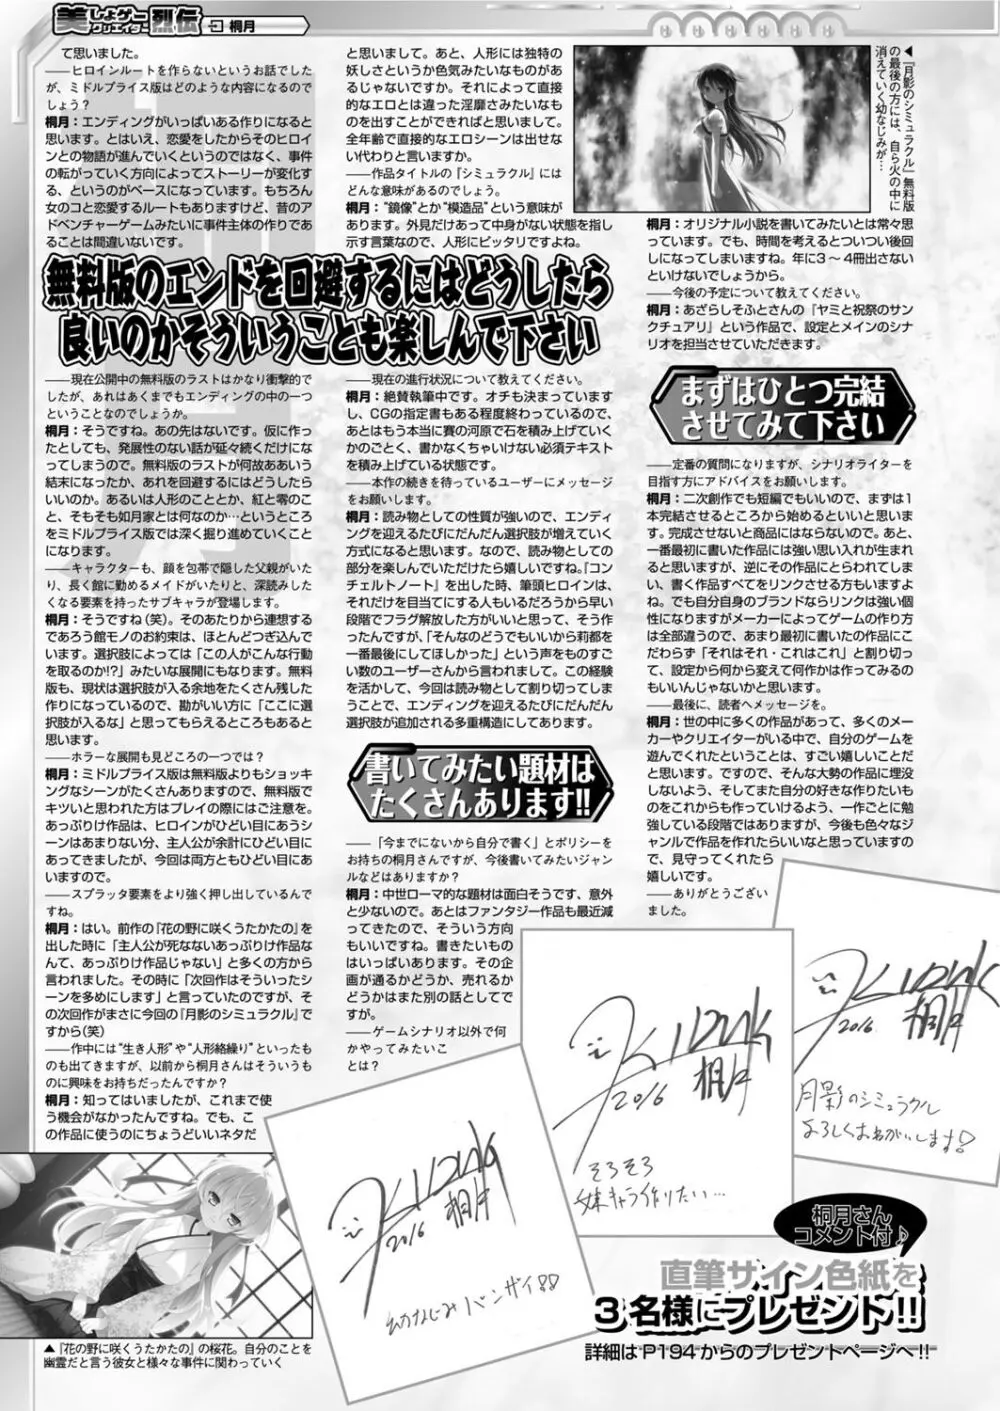 美しょゲー
クリエイター
烈伝
桐月
て思いました。
――ヒロインルートを作らないというお話でした
が、ミドルプライス版はどのような内容になるので
しょう？
桐月：エンディングがいっぱいある作りになると
思います。とはいえ、恋愛をしたからそのヒロイ
ンとの物語が進んでいくというのではなく、事件
の転がっていく方向によってストーリーが変化す
る、というのがベースになっています。もちろん
女のコと恋愛するルートもありますけど、昔のア
ドベンチャーゲームみたいに事件主体の作りであ
ることは間違いないです。
無料版のエンドを回避するにはどうしたら
良いのかそういうことも楽しんで下さい
――現在公開中の無料版のラストはかなり衝撃的で
したが、あれはあくまでもエンディングの中の一つ
ということなのでしょうか。
桐月：そうですね。あの先はないです。仮に作っ
たとしても、発展性のない話が延々続くだけにな
ってしまうので。無料版のラストが何故ああいう
結末になったか、あれを回避するにはどうしたら
いいのか。あるいは人形のこととか、紅と零のこ
と、そもそも如月家とは何なのか…というところ
をミドルプライス版では深く掘り進めていくこと
になります。
――キャラクターも、顔を包帯で隠した父親がいた
り、長く館に勤めるメイドがいたりと、深読みした
くなる要素を持ったサブキャラが登場します。
桐月：そうですね（笑）。そのあたりから連想する
であろう館モノのお約束は、ほとんどつぎ込んで
います。選択肢によっては「この人がこんな行動
を取るのか!?」みたいな展開にもなります。無料
版も、現状は選択肢が入る余地をたくさん残した
作りになっているので、勘がいい方に「ここに選
択肢が入るな」と思ってもらえるところもあると
思います。
――ホラーな展開も見どころの一つでは？
桐月：ミドルプライス版は無料版よりもショッキ
ングなシーンがたくさんありますので、無料版で
キツいと思われた方はプレイの際にはご注意を。
あっぷりけ作品は、ヒロインがひどい目にあうシ
ーンはあまりない分、主人公が余計にひどい目に
あってきましたが、今回は両方ともひどい目にあ
いますので。
――スプラッタ要素をより強く押し出しているんで
すね。
桐月：はい。前作の『花の野に咲くうたかたの』を
出した時に「主人公が死なないあっぷりけ作品な
んて、あっぷりけ作品じゃない」と多くの方から
言われました。その時に「次回作はそういったシ
ーンを多めにします」と言っていたのですが、そ
の次回作がまさに今回の『月影のシミュラクル』で
すから（笑）
――作中には“生き人形”や“人形絡繰り”といったも
のも出てきますが、以前から桐月さんはそういうも
のに興味をお持ちだったんですか？
桐月：知ってはいましたが、これまで使
う機会がなかったんですね。でも、こ
の作品に使うのにちょうどいいネタだ
▲『花の野に咲くうたかたの』の桜花。自分のことを
幽霊だと言う彼女と様々な事件に関わっていく
と思いまして。あと、人形には独特の
妖しさというか色気みたいなものがあ
るじゃないですか。それによって直接
的なエロとは違った淫靡さみたいなも
のを出すことができればと思いまして。
全年齢で直接的なエロシーンは出せな
い代わりと言いますか。
――作品タイトルの『シミュラクル』には
どんな意味があるのでしょう。
桐月：“鏡像”とか“模造品”という意味が
あります。外見だけあって中身がない状態を指し
示す言葉なので、人形にピッタリですよね。
――現在の進行状況について教えてください。
桐月：絶賛執筆中です。オチも決まっています
し、CGの指定書もある程度終わっているので、
あとはもう本当に賽の河原で石を積み上げていく
かのごとく、書かなくちゃいけない必須テキスト
を積み上げている状態です。
――本作の続きを待っているユーザーにメッセージ
をお願いします。
桐月：読み物としての性質が強いので、エンディ
ングを迎えるたびにだんだん選択肢が増えていく
方式になると思います。なので、読み物としての
部分を楽しんでいただけたら嬉しいですね。『コン
チェルトノート』を出した時、筆頭ヒロインは、
それだけを目当てにする人もいるだろうから早い
段階でフラグ解放した方がいいと思って、そう作
ったんですが、「そんなのどうでもいいから莉都を
一番最後にしてほしかった」という声をものすご
い数のユーザーさんから言われまして。この経験
を活かして、今回は読み物として割り切ってしま
うことで、エンディングを迎えるたびにだんだん
選択肢が追加される多重構造にしてあります。
書いてみたい題材は
たくさんあります!!
――「今までにないから自分で書く」とポリシーを
お持ちの桐月さんですが、今後書いてみたいジャン
ルなどはありますか？
桐月：中世ローマ的な題材は面白そうです、意外
と少ないので。あとはファンタジー作品も最近減
ってきたので、そういう方向
もいいですね。書きたいもの
はいっぱいあります。その企
画が通るかどうか、売れるか
どうかはまた別の話としてで
すが。
――ゲームシナリオ以外で何
かやってみたいこ
とは？
◀『月影のシミュラクル』無料版
の最後の方には、自ら火の中に
消えていく幼なじみが…
桐月：オリジナル小説を書いてみたいとは常々思
っています。でも、時間を考えるとついつい後回
しになってしまいますね。年に3～4冊出さない
といけないでしょうから。
――今後の予定について教えてください。
桐月：あざらしそふとさんの『ヤミと祝祭のサン
クチュアリ』という作品で、設定とメインのシナ
リオを担当させていただきます。
まずはひとつ完結
させてみて下さい
――定番の質問になりますが、シナリオライターを
目指す方にアドバイスをお願いします。
桐月：二次創作でも短編でもいいので、まずは1
本完結させるところから始めるといいと思いま
す。完成させないと商品にはならないので。あと、
一番最初に書いた作品には強い思い入れが生まれ
ると思いますが、逆にその作品にとらわれてしま
い、書く作品すべてをリンクさせる方もいますよ
ね。でも自分自身のブランドならリンクは強い個
性になりますがメーカーによってゲームの作り方
は全部違うので、あまり最初に書いたの作品にこ
だわらず「それはそれ・これはこれ」と割り切っ
て、設定から何から変えて何作かは作ってみるの
もいいんじゃないかと思います。
――最後に、読者へメッセージを。
桐月：世の中に多くの作品があって、多くのメー
カーやクリエイターがいる中で、自分のゲームを
遊んでくれたということは、すごい嬉しいことだ
と思います。ですので、そんな大勢の作品に埋没
しないよう、そしてまた自分の好きな作りたいも
のをこれからも作っていけるよう、一作ごとに勉
強している段階ではありますが、今後も色々なジ
ャンルで作品を作れたらいいなと思っていますの
で、見守ってくれたら
嬉しいです。
――ありがとうござい
ました。
桐月
2016
幼なじみバンザイ!!
桐月
2016
そろそろ
妹キャラ作りたい…
桐月
2016
月影のシミュラクル
よろしくおねがいします!
桐月さん
コメント付♪
直筆サイン色紙を
3名様にプレゼント!!
詳細はP194からのプレゼントページへ!!